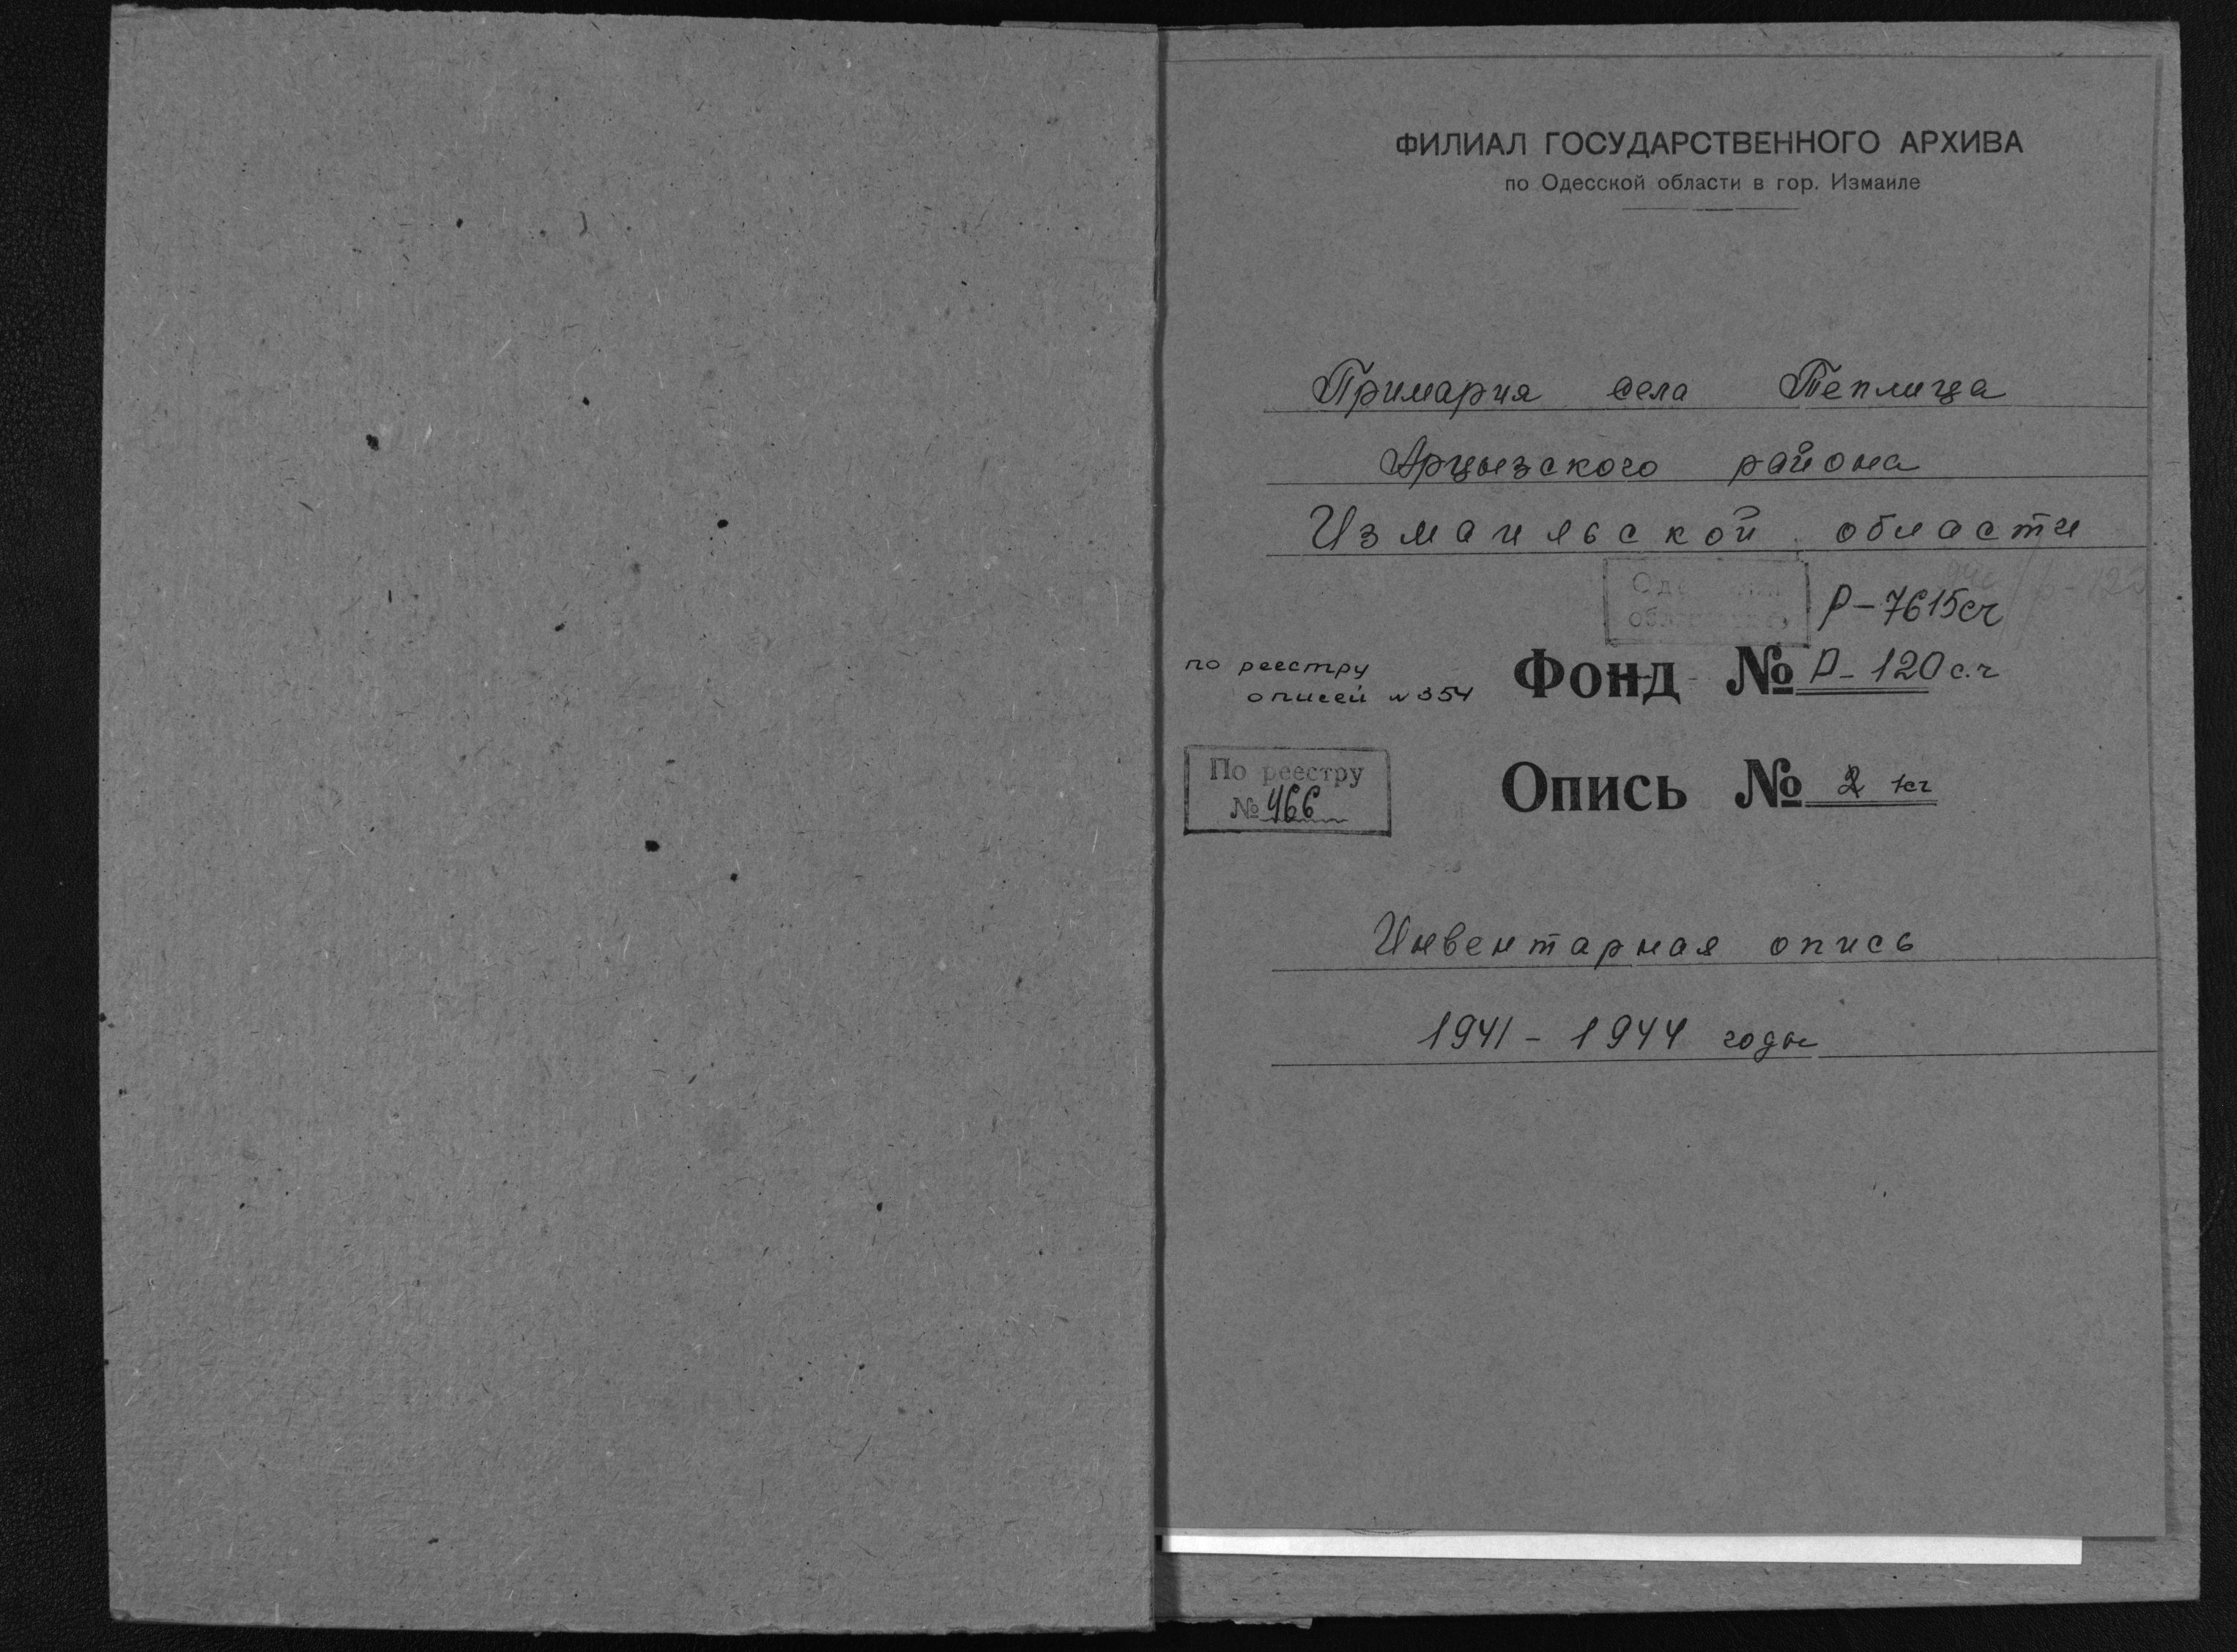 ФИЛИАЛ ГОСУДАРСТВЕННОГО АРХИВА
по Одесской области в гор. Измаиле
Примария села Теплица
Арцызского района
Измаильской области
Р-7615сч
по реестру
описей №354
Фонд № Р-120 с.ч
По реестру
№ 466
Опись № 2
Инвентарная опись
1941 - 1944 годы